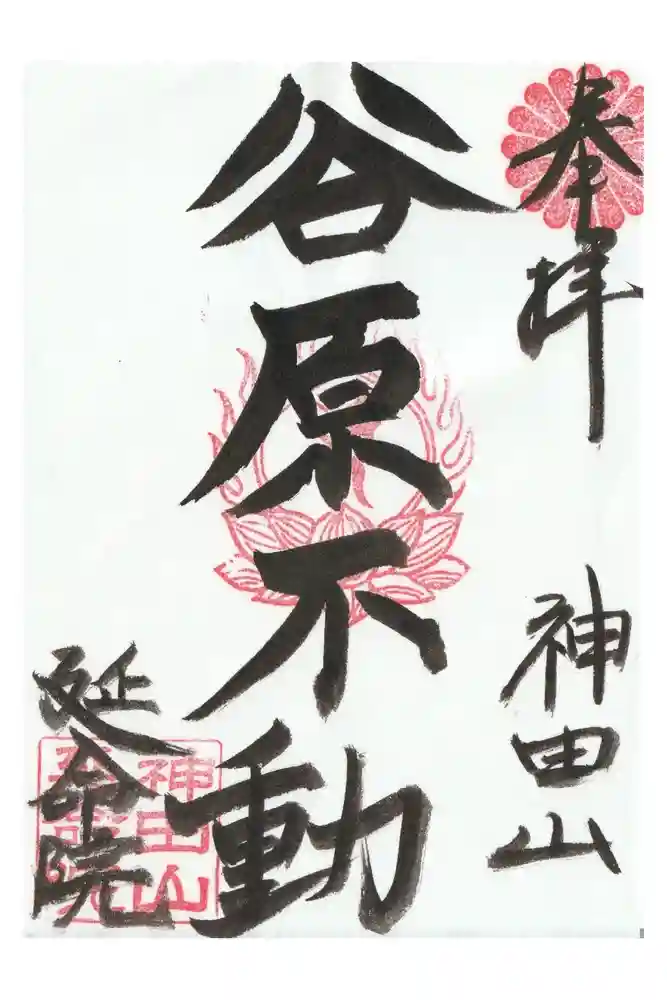 奉拝
神田山
谷原不動
延命院
神田山
延命院